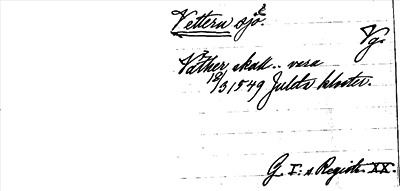 Vettern sjö.
Vg.
Väther, skall.. vara
12/3 1549 Julita kloster.
G. I:s Registr. XX.